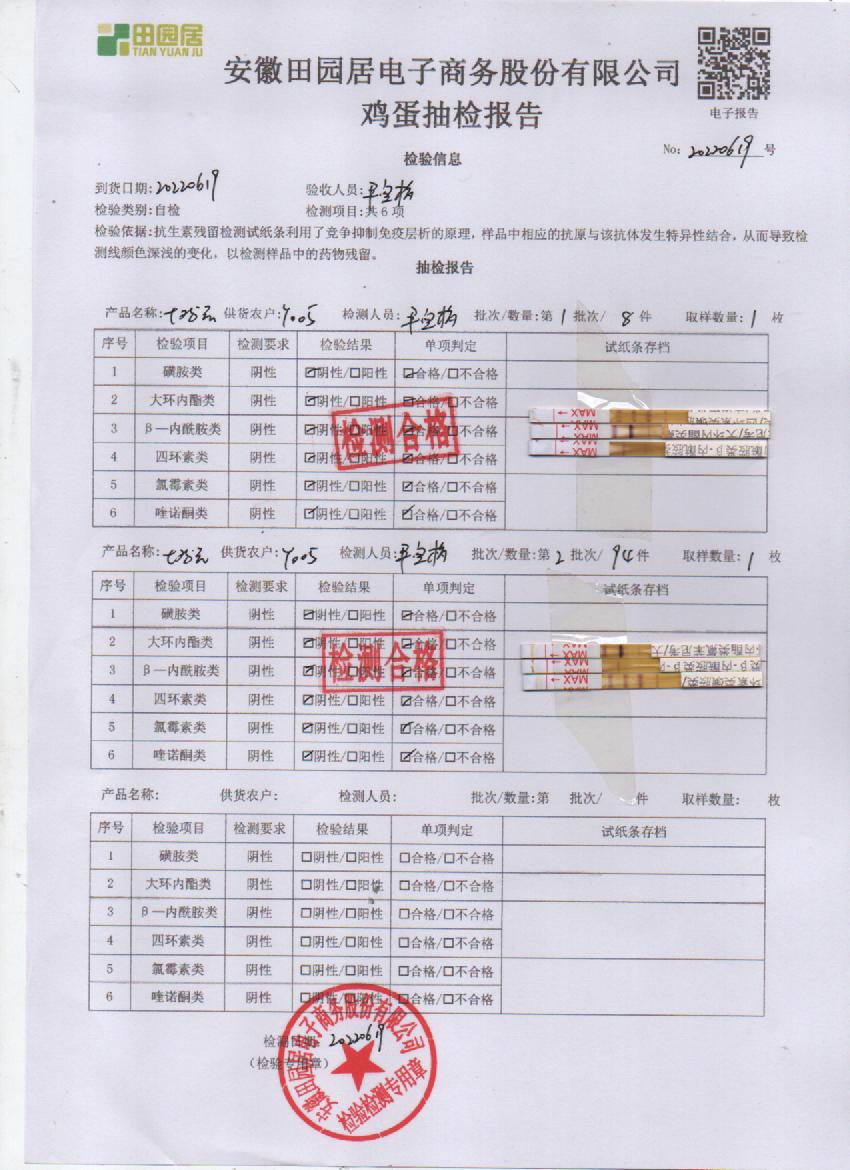 田园居
TIAN YUAN JU
安徽田园居电子商务股份有限公司
鸡蛋抽检报告
电子报告
No: 20220619 号
检验信息
到货日期:20220619 验收人员:
检验类别:自检 检测项目:共6项
检验依据:抗生素残留检测试纸条利用了竞争抑制免疫层析的原理，样品中相应的抗原与该抗体发生特异性结合，从而导致检
测线颜色深浅的变化，以检测样品中的药物残留。
抽检报告
产品名称: 供货农户:Y005 检测人员: 批次/数量:第1批次/ 8件 取样数量:1 枚
序号 检验项目 检测要求 检验结果 单项判定 试纸条存档
1 磺胺类 阴性 ☑阴性/☐阳性 ☑合格/☐不合格
2 大环内酯类 阴性 ☑阴性/☐阳性 ☑合格/☐不合格
3 β—内酰胺类 阴性 ☑阴性/☐阳性 ☑合格/☐不合格
4 四环素类 阴性 ☑阴性/☐阳性 ☑合格/☐不合格
5 氯霉素类 阴性 ☑阴性/☐阳性 ☑合格/☐不合格
6 喹诺酮类 阴性 ☑阴性/☐阳性 ☑合格/☐不合格
检测合格
MAX
MAX
MAX
产品名称: 供货农户:Y005 检测人员: 批次/数量:第2批次/ 94件 取样数量:1 枚
序号 检验项目 检测要求 检验结果 单项判定 试纸条存档
1 磺胺类 阴性 ☑阴性/☐阳性 ☑合格/☐不合格
2 大环内酯类 阴性 ☑阴性/☐阳性 ☑合格/☐不合格
3 β—内酰胺类 阴性 ☑阴性/☐阳性 ☑合格/☐不合格
4 四环素类 阴性 ☑阴性/☐阳性 ☑合格/☐不合格
5 氯霉素类 阴性 ☑阴性/☐阳性 ☑合格/☐不合格
6 喹诺酮类 阴性 ☑阴性/☐阳性 ☑合格/☐不合格
检测合格
MAX
MAX
MAX
产品名称: 供货农户: 检测人员: 批次/数量:第 批次/ 件 取样数量: 枚
序号 检验项目 检测要求 检验结果 单项判定 试纸条存档
1 磺胺类 阴性 ☐阴性/☐阳性 ☐合格/☐不合格
2 大环内酯类 阴性 ☐阴性/☐阳性 ☐合格/☐不合格
3 β—内酰胺类 阴性 ☐阴性/☐阳性 ☐合格/☐不合格
4 四环素类 阴性 ☐阴性/☐阳性 ☐合格/☐不合格
5 氯霉素类 阴性 ☐阴性/☐阳性 ☐合格/☐不合格
6 喹诺酮类 阴性 ☐阴性/☐阳性 ☐合格/☐不合格
检测日期: 20220619
(检验专用章)
安徽田园居电子商务股份有限公司
检验检测专用章